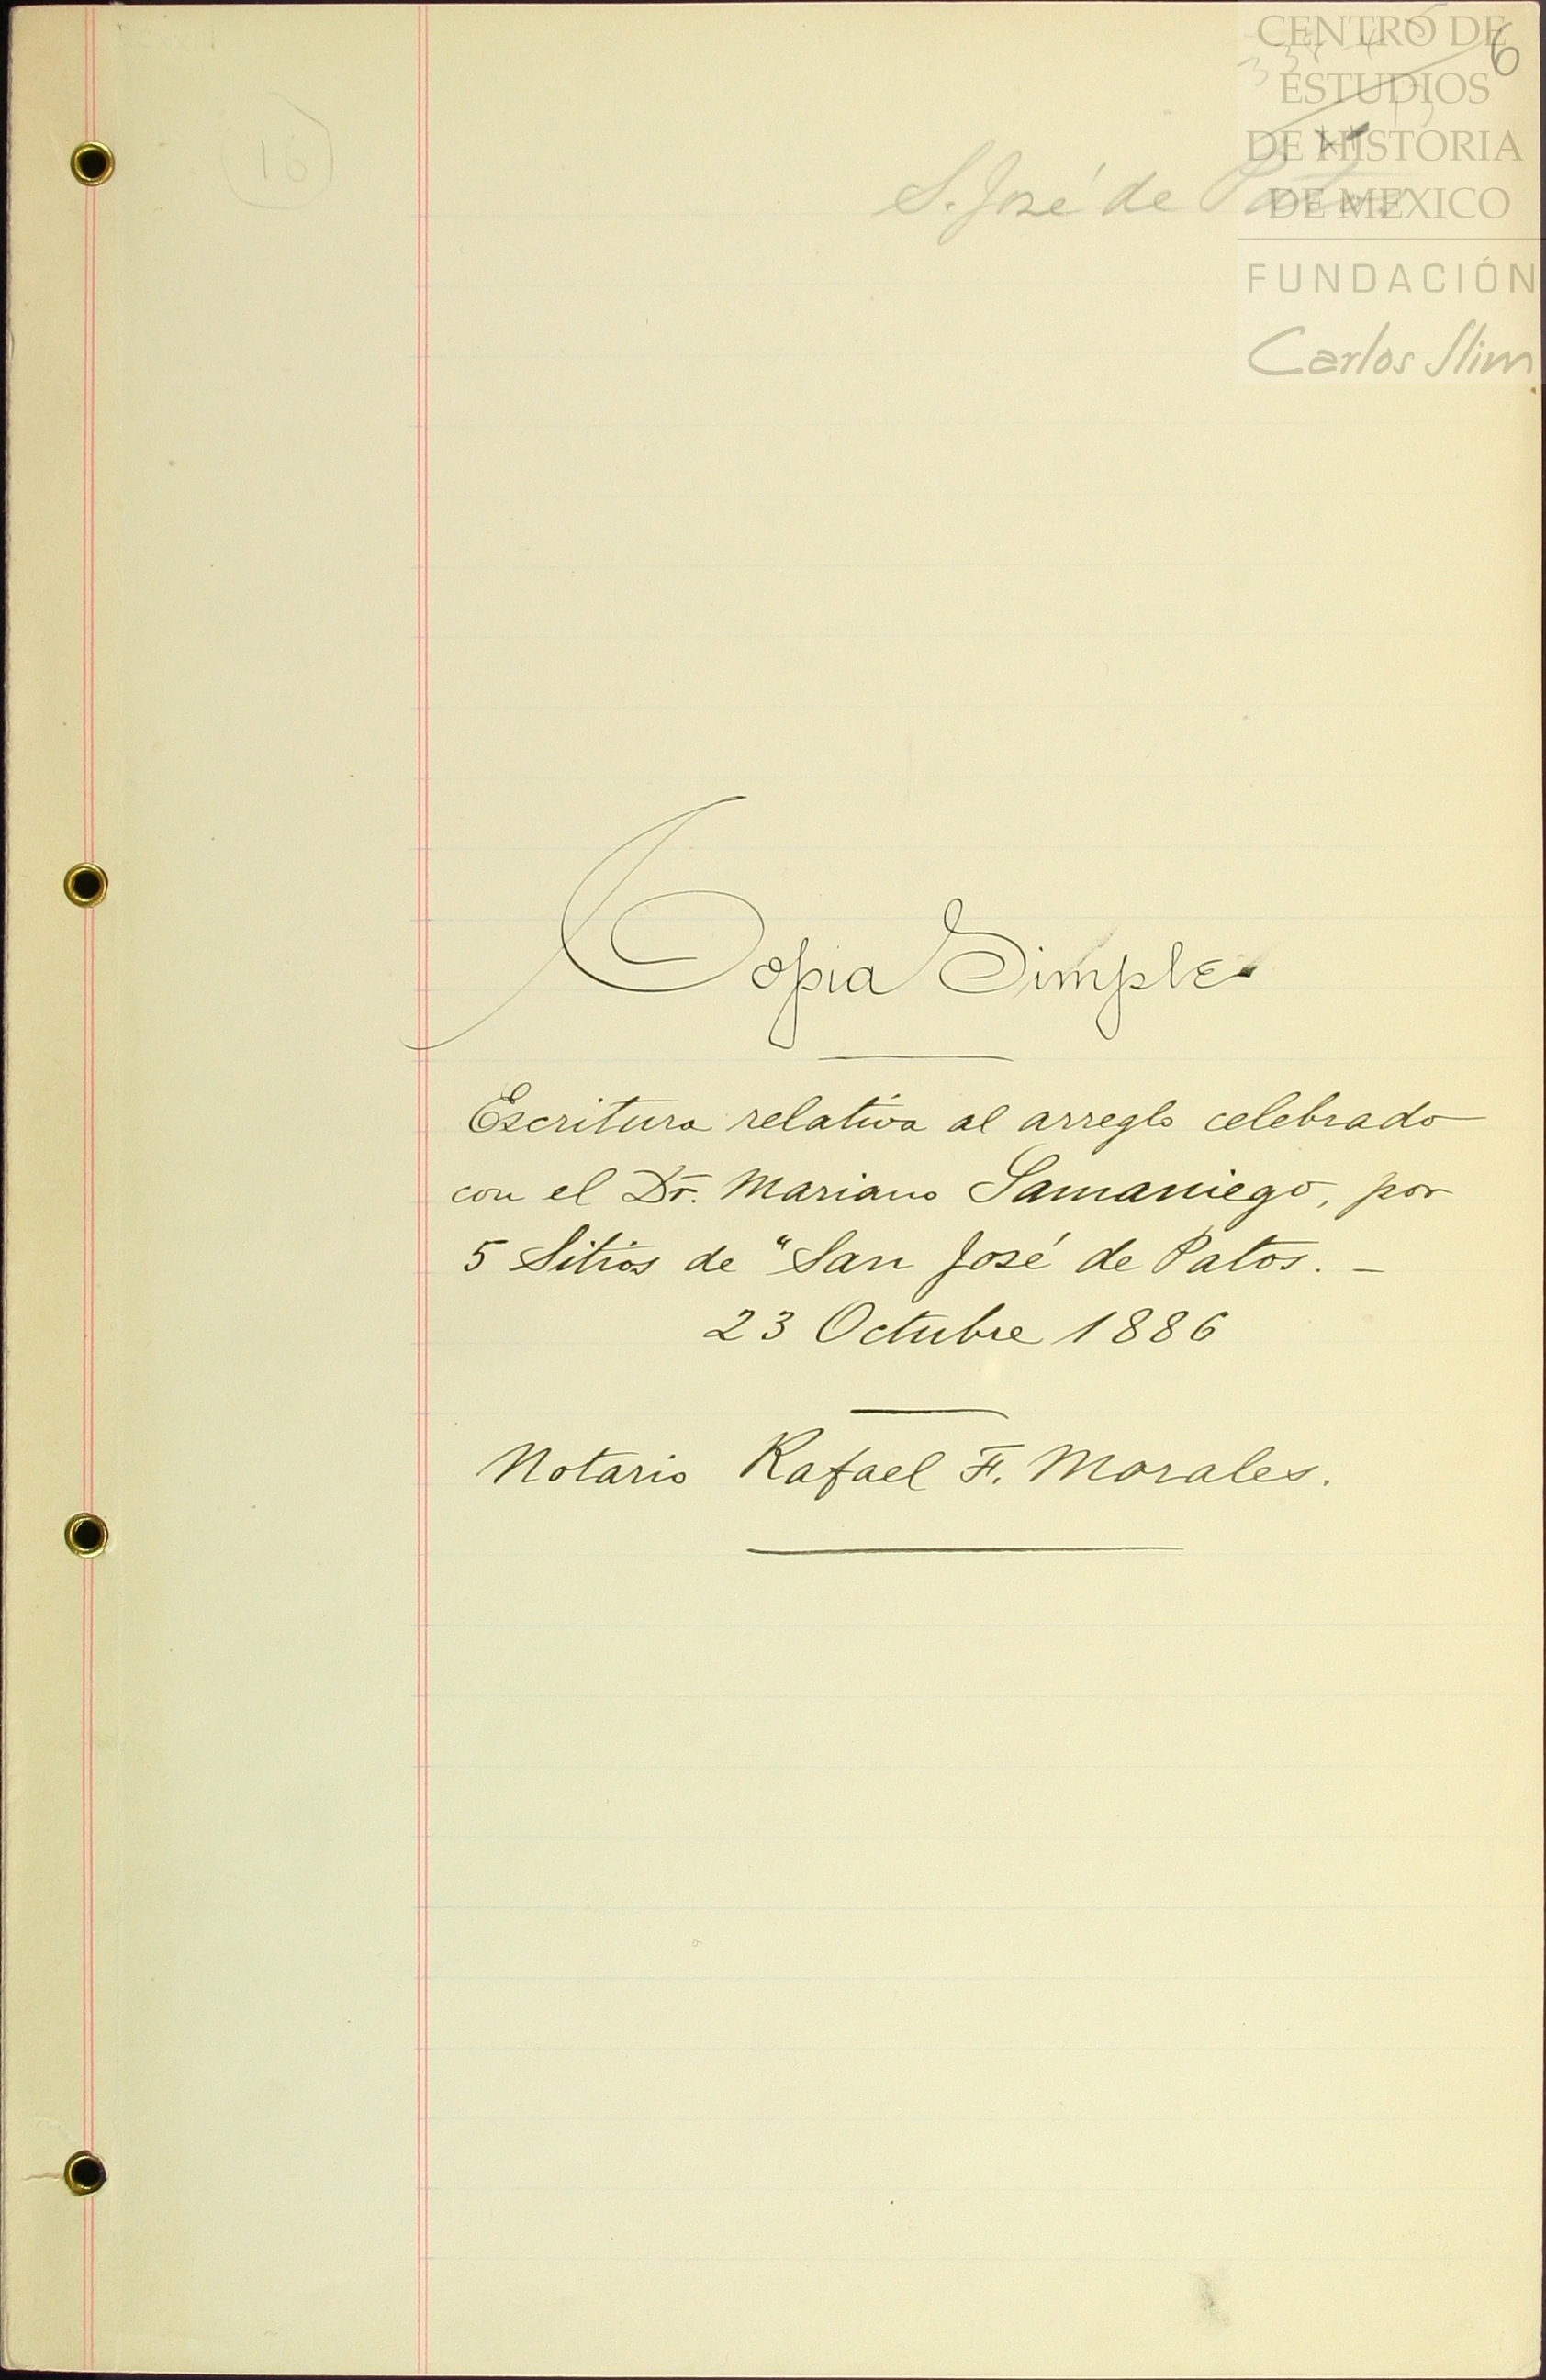 CENTRO DE
6
ESTUDIOS
DE HISTORIA
DE MEXICO
FUNDACIÓN
Carlos Slim
16
S. José de Patos
Copia Simple
Escritura relativa al arreglo celebrado
con el Dr. Mariano Samaniego, por
5 Sitios de "San José de Patos. –
23 Octubre 1886
Notario Rafael F. Morales.